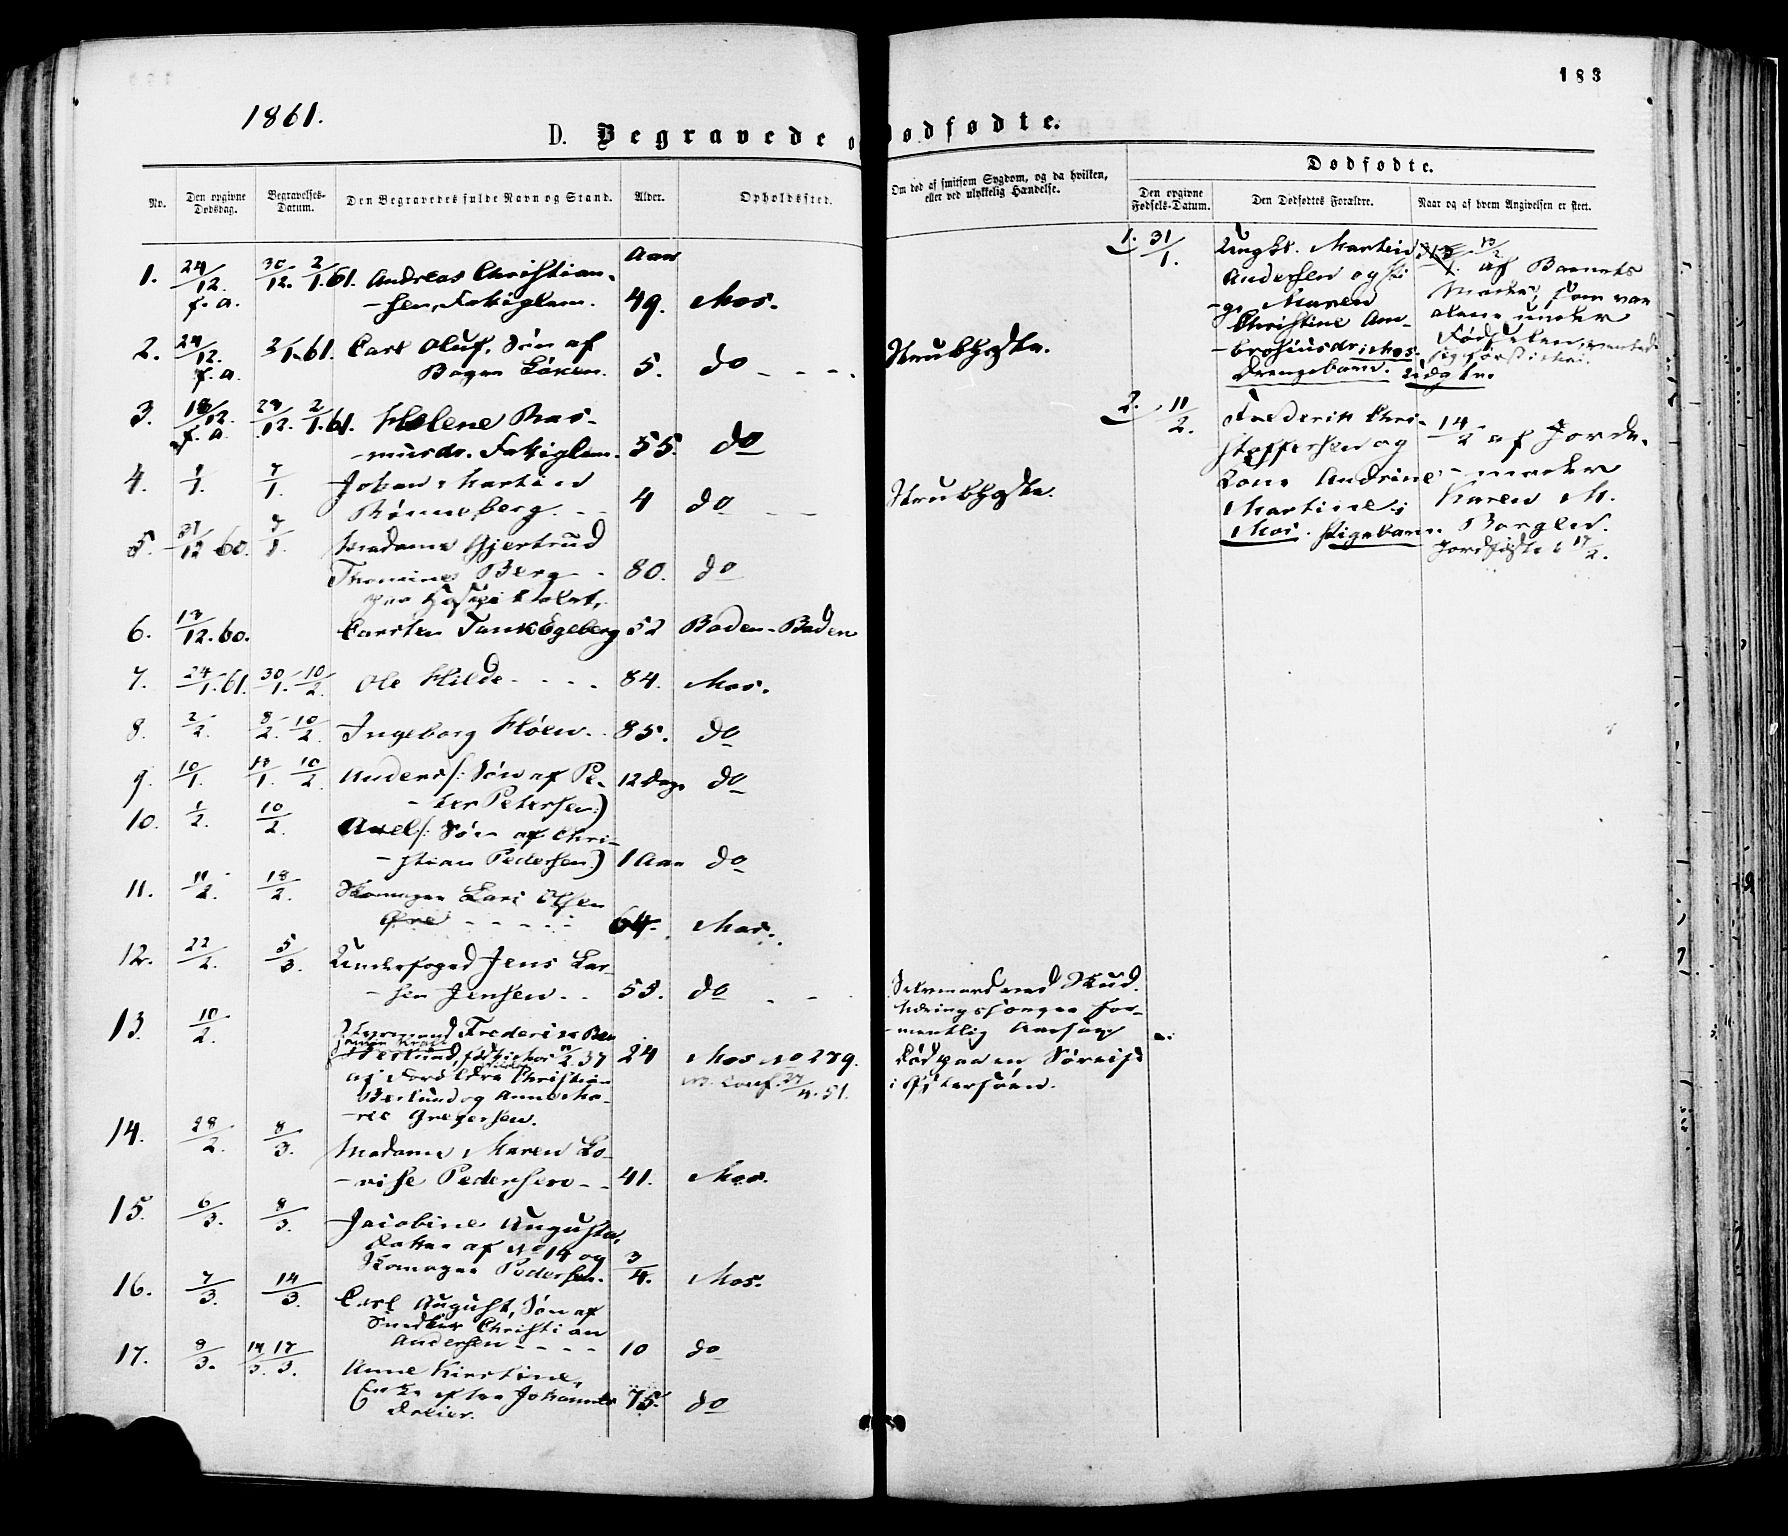 183
1861.
D. Begravede o
Dødfødte.
No.
Den opgivne Dødsdag.
Begravelses-Datum.
Den Begravedes fulde Navn og Stand.
Alder.
Opholdssted.
Om død af smitsom Sygdom, og da hvilken, eller ved ulykkelig Hændelse.
Dødfødte.
Den opgivne Fødsels-Datum.
Den Dødfødtes Forældre.
Naar og af hvem Angivelsen er skeet.
1. 24/12. f.a. 30/12. 2/1.61. Andreas Christian- Aar
-sen, Fattiglem. 49. Mos.
2. 24/12. f.a. 2/1.61. Carl Oluf, Søn af
Bager Løken. 5. do - - - Strubehoste.
3. 18/12. f.a. 29/12. 2/1.61. Helene Ras-
-musdr. Fattiglem. 55. do
4. 1/1. 7/1. Johan Martin
Rønneberg. - - 4 do - - Strubehoste.
5. 31/12 60. 7/1. Madame Gjertrud
Thomine Berg - - 80. do
paa Hospitalet,
6. 13/12.60. Carsten Tank Egeberg 52 Baden-Baden
7. 24/1.61. 30/1. 10/2. Ole Hilde - - - - 84. Mos.
8. 2/2. 8/2. 10/2. Ingeborg Höen. - 85. do
9. 10/1. 17/1. 10/2. Anders (: Søn af Pe-
-ter Petersen:) 12 Dage do
10. 1/2. 10/2. Axel (: Søn af Chri-
-stian Pedersen:) 1 Aar do
11. 11/2. 18/2. Skomager Lars Olsen
Øre - - - - - 64. Mos.
12. 22/2. 5/3. Underfoged Jens Lar-
-sen Jensen - - 53. do - -
13. 10/2. Styrmand Frederik Ben
Westlund, født 37
af Forældre Christian
Westlund og Anne Ma-
-rie Gregersen. 24 Mos No 279.
Conf. 4.51.
Sømand
-mentlig Aarsag
Død paa en Søreise
i Østersøen.
14. 28/2. 8/3. Madame Maren Lo-
-vise Pedersen - - 41. Mos.
15. 6/3. 8/3. Jacobine Augusta,
Datter af No 14 og
Skomager Pedersen. 3/4. Mos.
16. 7/3. 14/3. Carl August, Søn af
Snedker Christian
Andersen - - - - 10 do
17. 9/3. 14/3. 17/3. Anne Kirstine,
Enke efter Johannes 75. do
1. 31/1. Ungk. Martin
Andersen og Pi-
-ge Maren
Christine Am-
-brosiusdr. Mos.
Drengebarn. Udøbt.
13/2 af Barnets
Moder, som var
alene under
Fødselen,
2. 11/2. Frederik Chri-
-stoffersen og
Kone Andrine
Martine i
Mos. Pigebarn.
14/2 af Jorde-
-moder
Karen M.
Borgen.
Jordfæstet 17/2.